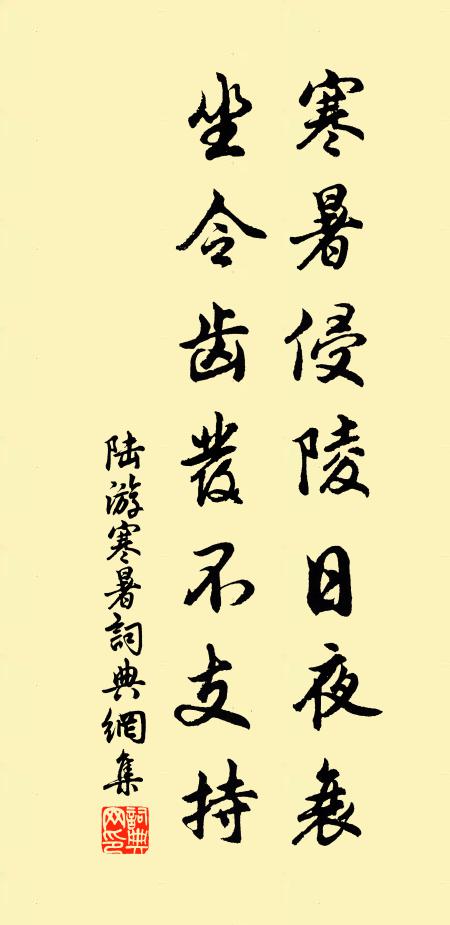 寒暑侵陵日夜衰
坐令齿發不支持
陆游寒暑詞典網集
詞典網印